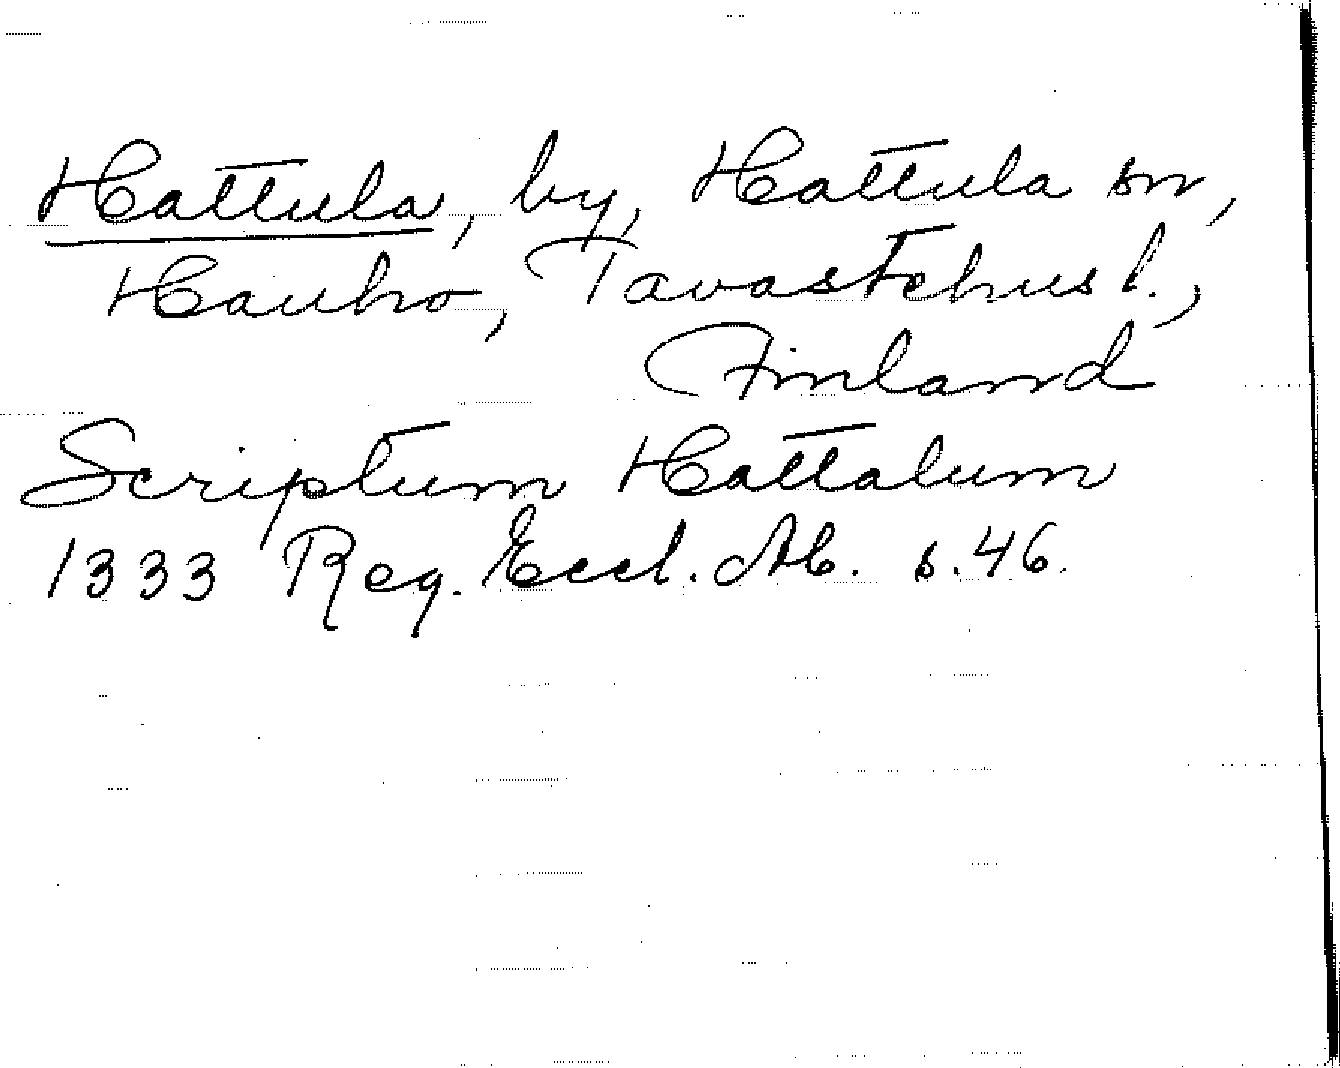 Hattula, by, Hattula sn,
Hauho, Tavastehus l.,
Finland
Scriptum Hattalum
1333 Reg. Eccl. Ab. s. 46.